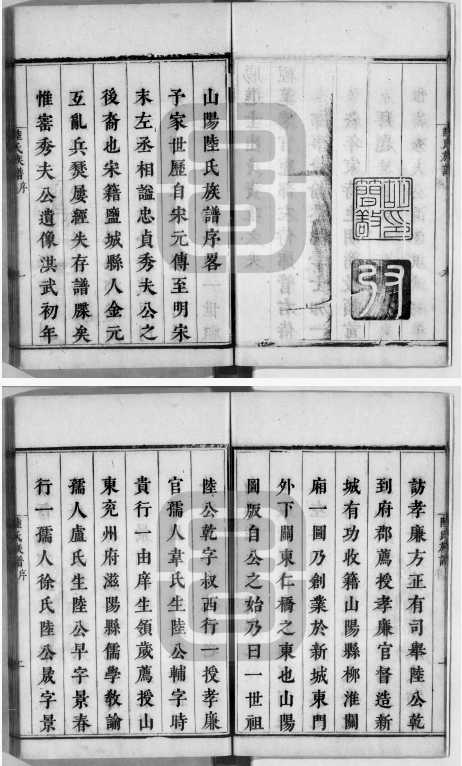 山陽陸氏族譜序畧
予家世歷自宋元傳至明宋
末左丞相謚忠貞秀夫公之
後裔也宋籍鹽城縣人金元
互亂兵燹屢經失存譜牒矣
惟審秀夫公遺像洪武初年
陸氏族譜序
訪孝廉方正有司舉陸公乾
到府郡薦授孝廉官督造新
城有功收籍山陽縣柳淮關
廂一圖乃創業於新城東門
外下關東仁橋之東也山陽
圖版自公之始乃曰一世祖
陸公乾字叔西行一授孝廉
官孺人韋氏生陸公輔字時
貴行一由庠生領歲薦授山
東兗州府滋陽縣儒學教諭
孺人盧氏生陸公早字景春
行一孺人徐氏陸公晟字景
陸氏族譜序